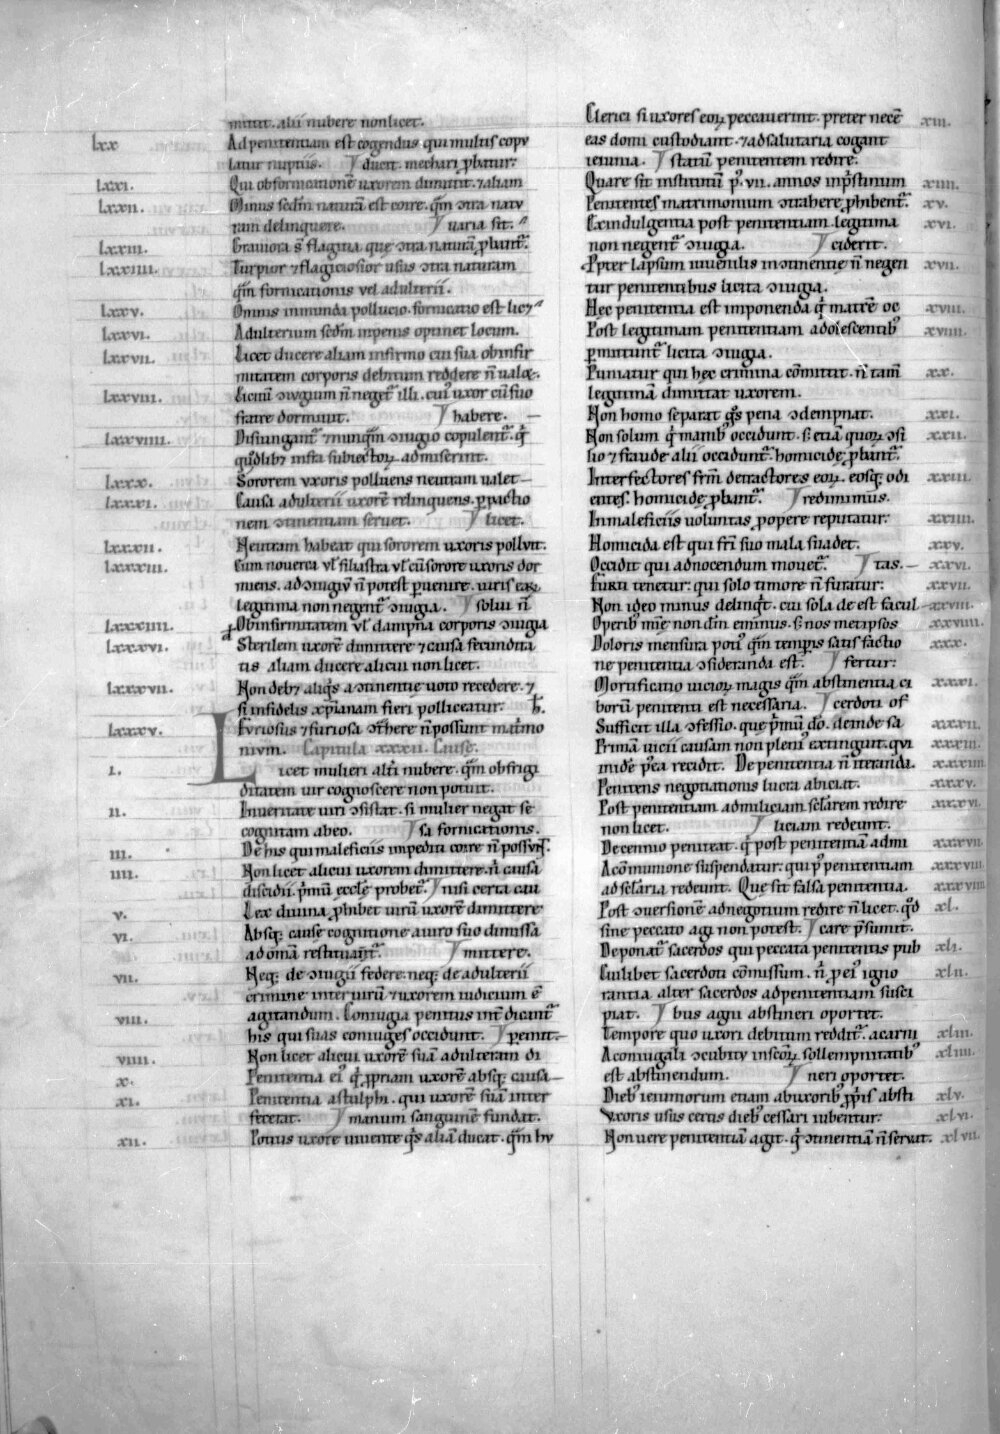 mittit. alii nubere non licet.
lxx Ad penitentiam est cogendus qui multis copu
latur nuptiis. ducit. mechari ꝓbatur.
lxxi. Qui ob fornicationē uxorem dimittit. ⁊ aliam
lxxii. Minus scdm naturā est coire. qm̄ ɔtra natu
ram delinquere. uaria sit.
lxxiii. Grauiora s̄ flagitia que ɔtra naturā ꝓbant᷑.
lxxiiii. Turpior ⁊ flagiciosior usus ɔtra naturam
qm̄ fornicationis vel adulterii.
lxxv. Omnis inmunda pollucio. fornicatio est lic⁊
lxxvi. Adulterium scdm inpenis optinet locum.
lxxvii. Licet ducere aliam infirmo cui sua ob infir
mitatem corporis debitum reddere n̄ ualet.
lxxviii. Licitū ɔiugium n̄ neget᷑ illi. cui᷒ uxor cū suo
fratre dormiuit. habere.
lxxviiii. Disiungant᷑ ⁊ nunqm̄ ɔiugio copulent᷑. q̄
qd̄libet infra subiectoꝝ admiserint.
lxxx. Sororem uxoris polluens neutram ualet
lxxxi. Causa adulterii uxorē relinquens. ꝑpactio
nem ɔtinentiam seruet. licet.
lxxxii. Neutram habeat qui sororem uxoris polluit.
lxxxiii. Cum nouerca ul̄ filiastra ul̄ cū sorore uxoris dor
miens. ad ɔiugiū n̄ potest ꝑuenire. uiris eaꝝ
legitima non negent᷑ ɔiugia. solui n̄
lxxxiiii. Ob infirmitatem ul̄ dampna corporis ɔiugia
lxxxvi. Sterilem uxorē dimittere ⁊ causa fecundita
tis aliam ducere alicui non licet.
lxxxvii. Non deb⁊ aliq̄s a ɔtinentie uoto recedere. ⁊
si infidelis xp̄ianam fieri polliceatur.
lxxxv. Furiosus ⁊ furiosa ɔt̄here n̄ possunt mat̄mo
nium. Capitula xxxiii. Cause.
i. Licet mulieri alt̄i nubere. qm̄ ob frigi
ditatem uir cognoscere non potuit.
ii. In ueritate uiri ɔsistat. si mulier negat se
cognitam ab eo. sa fornicationis.
iii. De his qui maleficiis impediti coire n̄ possunt.
iiii. Non licet alicui uxorem dimittere. n̄ causa
discidii. p̄mū eccle ꝓbet᷑. nisi certa cau
v. Lex diuina ꝓhibet uirū uxorē dimittere
vi. Absq; cause cognitione a uiro suo dimissa
ad omā restituant᷑. mittere.
vii. Neq; de ɔiugii federe. neq; de adulterii
crimine inter uirū ⁊ uxorem iudicium ē
agitandum. Coniugia penitus int̄dicunt᷑
viii. his qui suas coniuges occidunt. ꝑemit
viiii. Non licet alicui uxorē suā adulteram oc
x. Penitentia ei᷒ q̄ ꝓpriam uxorē absq; causa
xi. Penitentia astulphi. qui uxorē suā inter
fecerat. manum sanguinē fundat.
xii. Potius uxore uiuente q̄s aliā ducat. qm̄ hu
Clerici si uxores eoꝝ peccauerint. preter necē xiii.
eas domi custodiant. ⁊ ad salutaria cogant
ieiunia. statum penitentem redire.
Quare sit institutū ꝑ .vii. annos in pristinum xiiii.
Penitentes matrimonium ɔtrahere ꝓhibent᷑. xv.
Ex indulgentia post penitentiam legitima xvi.
non negent᷑ ɔiugia. ciderit.
Ppter lapsum iuuenilis inɔtinentie n̄ negen xvii.
tur penitentibus licita ɔiugia.
Hec penitentia est imponenda q̄ matrē oc xviii.
Post legitimam penitentiam adolescentib᷒ xviiii.
ꝑmittunt᷑ licita ɔiugia.
Puniatur qui hec crimina cōmittit. n̄ tam̄ xx.
legitimā dimittat uxorem.
Non homo separat q̄s pena ɔdempnat. xxi.
Non solum q̄ manib᷒ occidunt. s; etiā quoꝝ ɔsi xxii.
lio ⁊ fraude alii occidunt᷑. homicide ꝓbant᷑.
Interfectores frm̄ detractores eoꝝ. eosq; odi xxiii.
entes. homicide ꝓbant᷑. redimimus.
In maleficiis uoluntas ꝓ opere reputatur. xxiiii.
Homicida est qui fr̄i suo mala suadet. xxv.
Occidit qui ad nocendum mouet᷑. tas. xxvi.
furti tenetur: qui solo timore n̄ furatur. xxvii.
Non ideo minus delinq̄t. cui sola deest facul xxviii.
Operib᷒ mīe non dm̄ emimus. s; nos metipsos xxviiii.
Doloris mensura poti᷒ qm̄ temꝑis satisfactio xxx.
ne penitentia ɔsideranda est. fertur.
Mortificatio uicioꝝ magis qm̄ abstinentia ci xxxi.
borū penitenti est necessaria. cerdoti of
Sufficit illa ɔfessio. que p̄mū dō. deinde sa xxxii.
Primā uicii causam non pleni᷒ extinguit. qui xxxiii.
inide p̄ea recidit. De penitentia n̄ iteranda. xxxiiii.
Penitens negotiationis lucra abiciat. xxxv.
Post penitentiam ad miliciam seclarem redire xxxvi.
non licet. liciam redeunt.
Decennio peniteat. q̄ post penitentiā ad mi xxxvii.
A cōmunione suspendatur. qui p᷒ penitentiam xxxviii.
ad seclaria redeunt. Que sit falsa penitentia. xxxviiii
Post ɔuersionē ad negotium redire n̄ licet. qd̄ xl.
sine peccato agi non potest. care p̄sumit.
Deponat᷑ sacerdos qui peccata penitentis pub xli.
Cuilibet sacerdoti cōmissum. n̄ p̄ ei᷒ igno xlii.
rantia alter sacerdos ad penitentiam susci
piat. bus agni abstineri oportet.
Tempore quo uxori debitum reddit᷑. a carni xliii.
A coniugali ɔcubitu in sc̄oꝝ sollempnitatib᷒ xliiii.
est abstinendum. neri oportet.
Dieb᷒ ieiuniorum etiam ab uxorib᷒ ꝓpriis absti xlv.
Vxoris usus certis dieb᷒ cessari iubentur. xlvi.
Non uere penitentiā agit. q̄ ɔtinentiā n̄ seruat. xlvii.